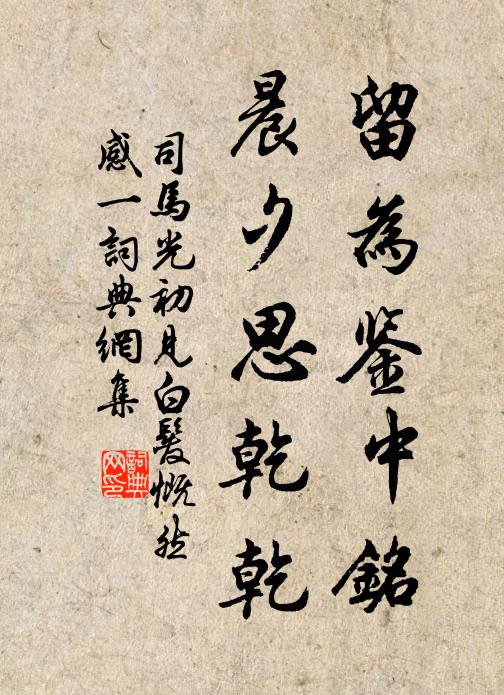 留為鉴中銘
晨夕思乾乾
司馬光初見白髮慨然
感一詞典網集
詞典
网印